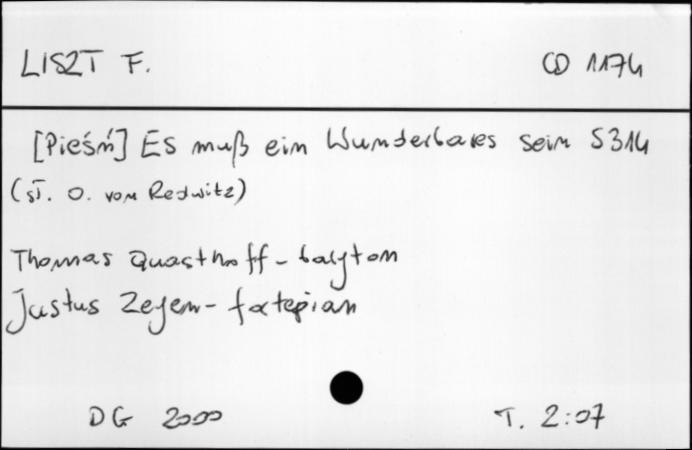 LISZT F. CD 1174
[Pieśń] Es muß ein Wunderbares sein S314
(sł. O. von Redwitz)
Thomas Quasthoff - baryton
Justus Zeyen - fortepian
DG 2000 T. 2:07